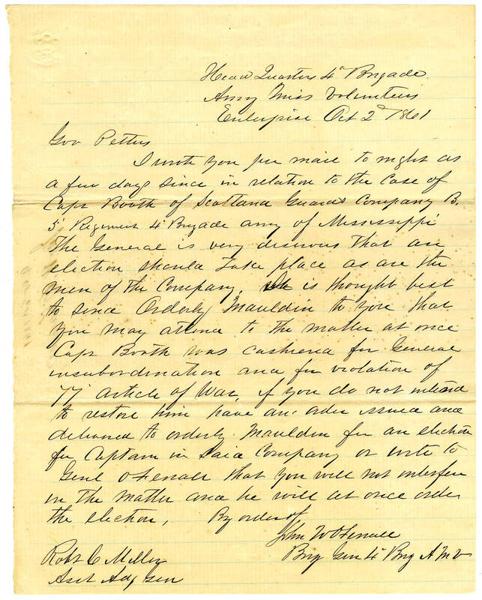 Head Quarters 4" Brigade
Army Miss Volunteers
Enterprise Oct 2d 1861
Gov Pettus
I wrote you per mail to night as
a few days since in relation to the Case of
Capt Booth of Scotland Guards Company B.
5" Regiment 4" Brigade army of Mississippi
The General is very desirous that an
election should take place as are the
men of the Company, It is thought best
to send Orderly Mauldin to you that
you may attend to the matter at once
Capt Booth was cashiered for General
insubordination and for violation of
77" article of War, if you do not intend
to restore him have an order issued and
delivered to orderly Mauldin for an election
for Captain in said Company or write to
Genl O Ferrall that you will not interfere
in the matter and he will at once order
the election, By order of
John W O Ferrall
Brig Gen 4" Brig A M V
Robt C Miller
Asst Adj Gen